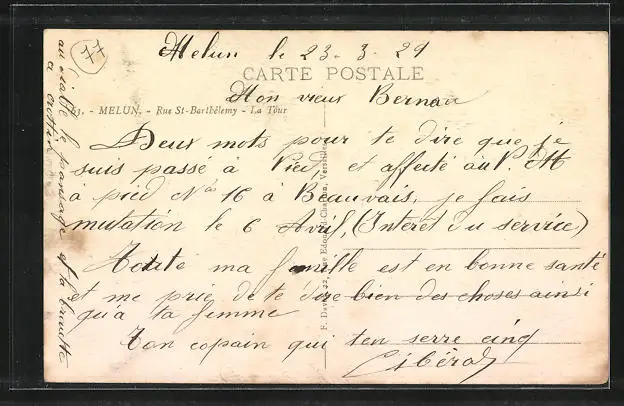 77
Melun le 23-3-29
CARTE POSTALE
Mon vieux Bernau
63. - MELUN. - Rue St-Barthélemy - La Tour
Deux mots pour te dire que je
suis passé à Pied, et affecté au P. M
à pied No 16 à Beauvais, je fais
mutation le 6 Avril, (Interet du service)
Toute ma famille est en bonne santé
et me prie de te dire bien des choses ainsi
qu'a ta femme
Ton copain qui ten serre cinq
Libéral
au diable le pansage et la brosse